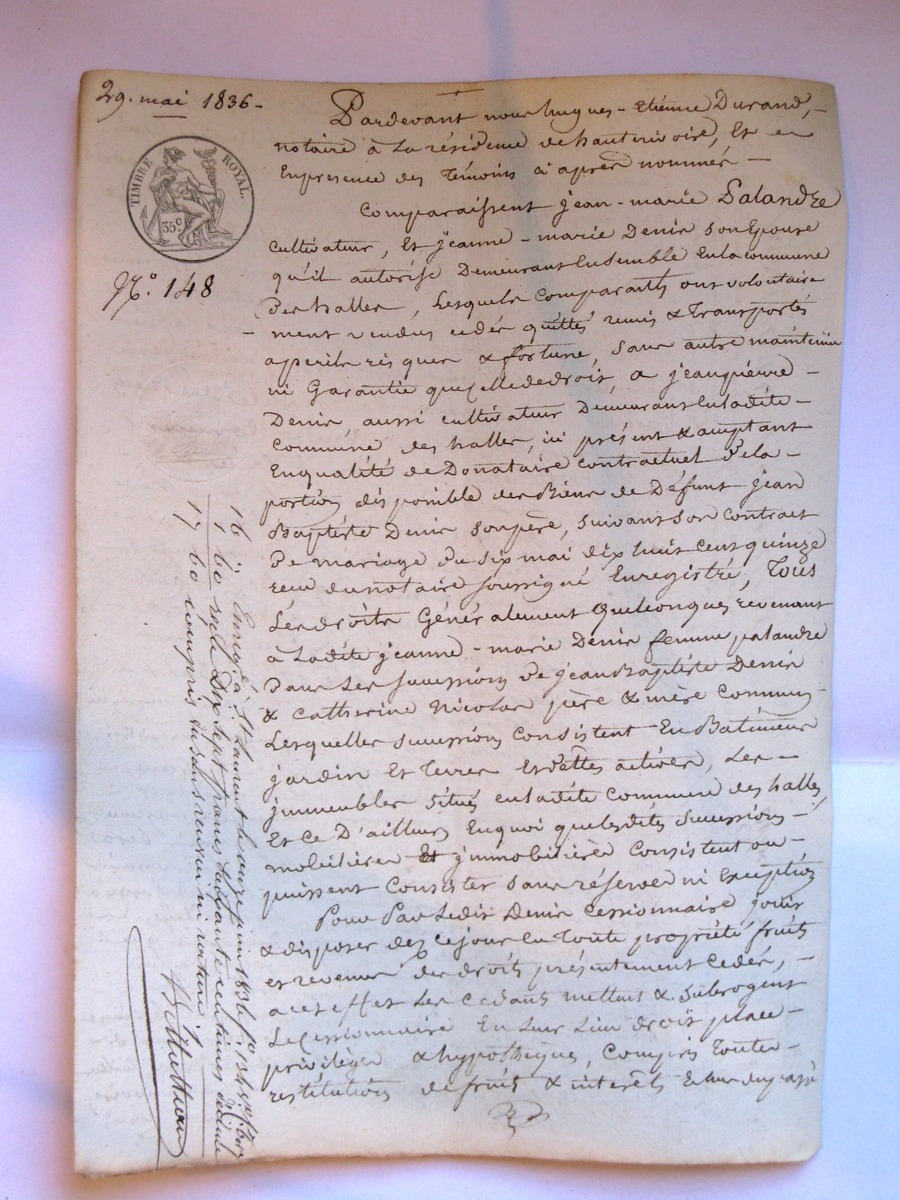 29. mai 1836 -
TIMBRE ROYAL.
35 c
N.o 148
Pardevant nous hugues - Etiénne Durand, -
notaire à La résidence de hauterivoire, Et en
Enpresence des Témoins ci après nommés -
Comparaissent jean - marie Palandre
cultivateur, Et jeanne - marie Denis son Epouse
qu'il autorise Demeurant Ensemble En la commune
Des halles, Lesquels Comparants ont volontaire
- ment vendus cédés quittés remis & Transportés
a perils risques & fortune, Sans autre maintenue
ni Garantie que celle de droit, a jean pierre -
Denis aussi cultivateur Demeurant En ladite -
Commune des halles, ici présent & acceptant
En qualité de Donataire contractuel De la -
portion disponible des Biens de Défunt jean
Baptiste Denis son père, suivant son contrat
De mariage Du six mai dix huit cent quinze
recu du notaire soussigné Enregistré, Tous
Les droits Généralement Quelconques revenant
à Ladite jeanne - marie Denis femme palandre
Dans Les successions De jean Baptiste Denis
& Catherine Nicolas père & mère communs
Lesquelles successions Consistent En Batiments
jardin Et Terres Et dettes actives, Les -
jmmeubles situés en ladite Commune des halles
Et ce D'ailleurs En quoi que lesdites successions -
mobilières Et jmmobilières Consistent ou -
puissent Consister sans réserve ni Exception
Pour Par Ledit Denis Cessionnaire jouir
& disposer dez ce jour En Toute propriété fruits
et revenus des droits présentement cedés, -
a cet effet Les cedants mettent & subrogent
Le Cessionnaire En Leur Lieu droit place -
privilèges & hypothèques, Compris Toutes -
restitutions de fruits & intérêts Echus du passé
Enreg. à St. Laurent le onze juin 1836 f.o 134
16
1 60 reçu Dix sept francs soixante centimes
17 60 compris sans renvoi ni rature